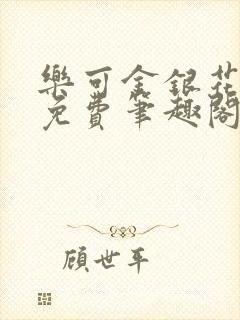 樂可金銀花
免費筆趣閣
顧世平